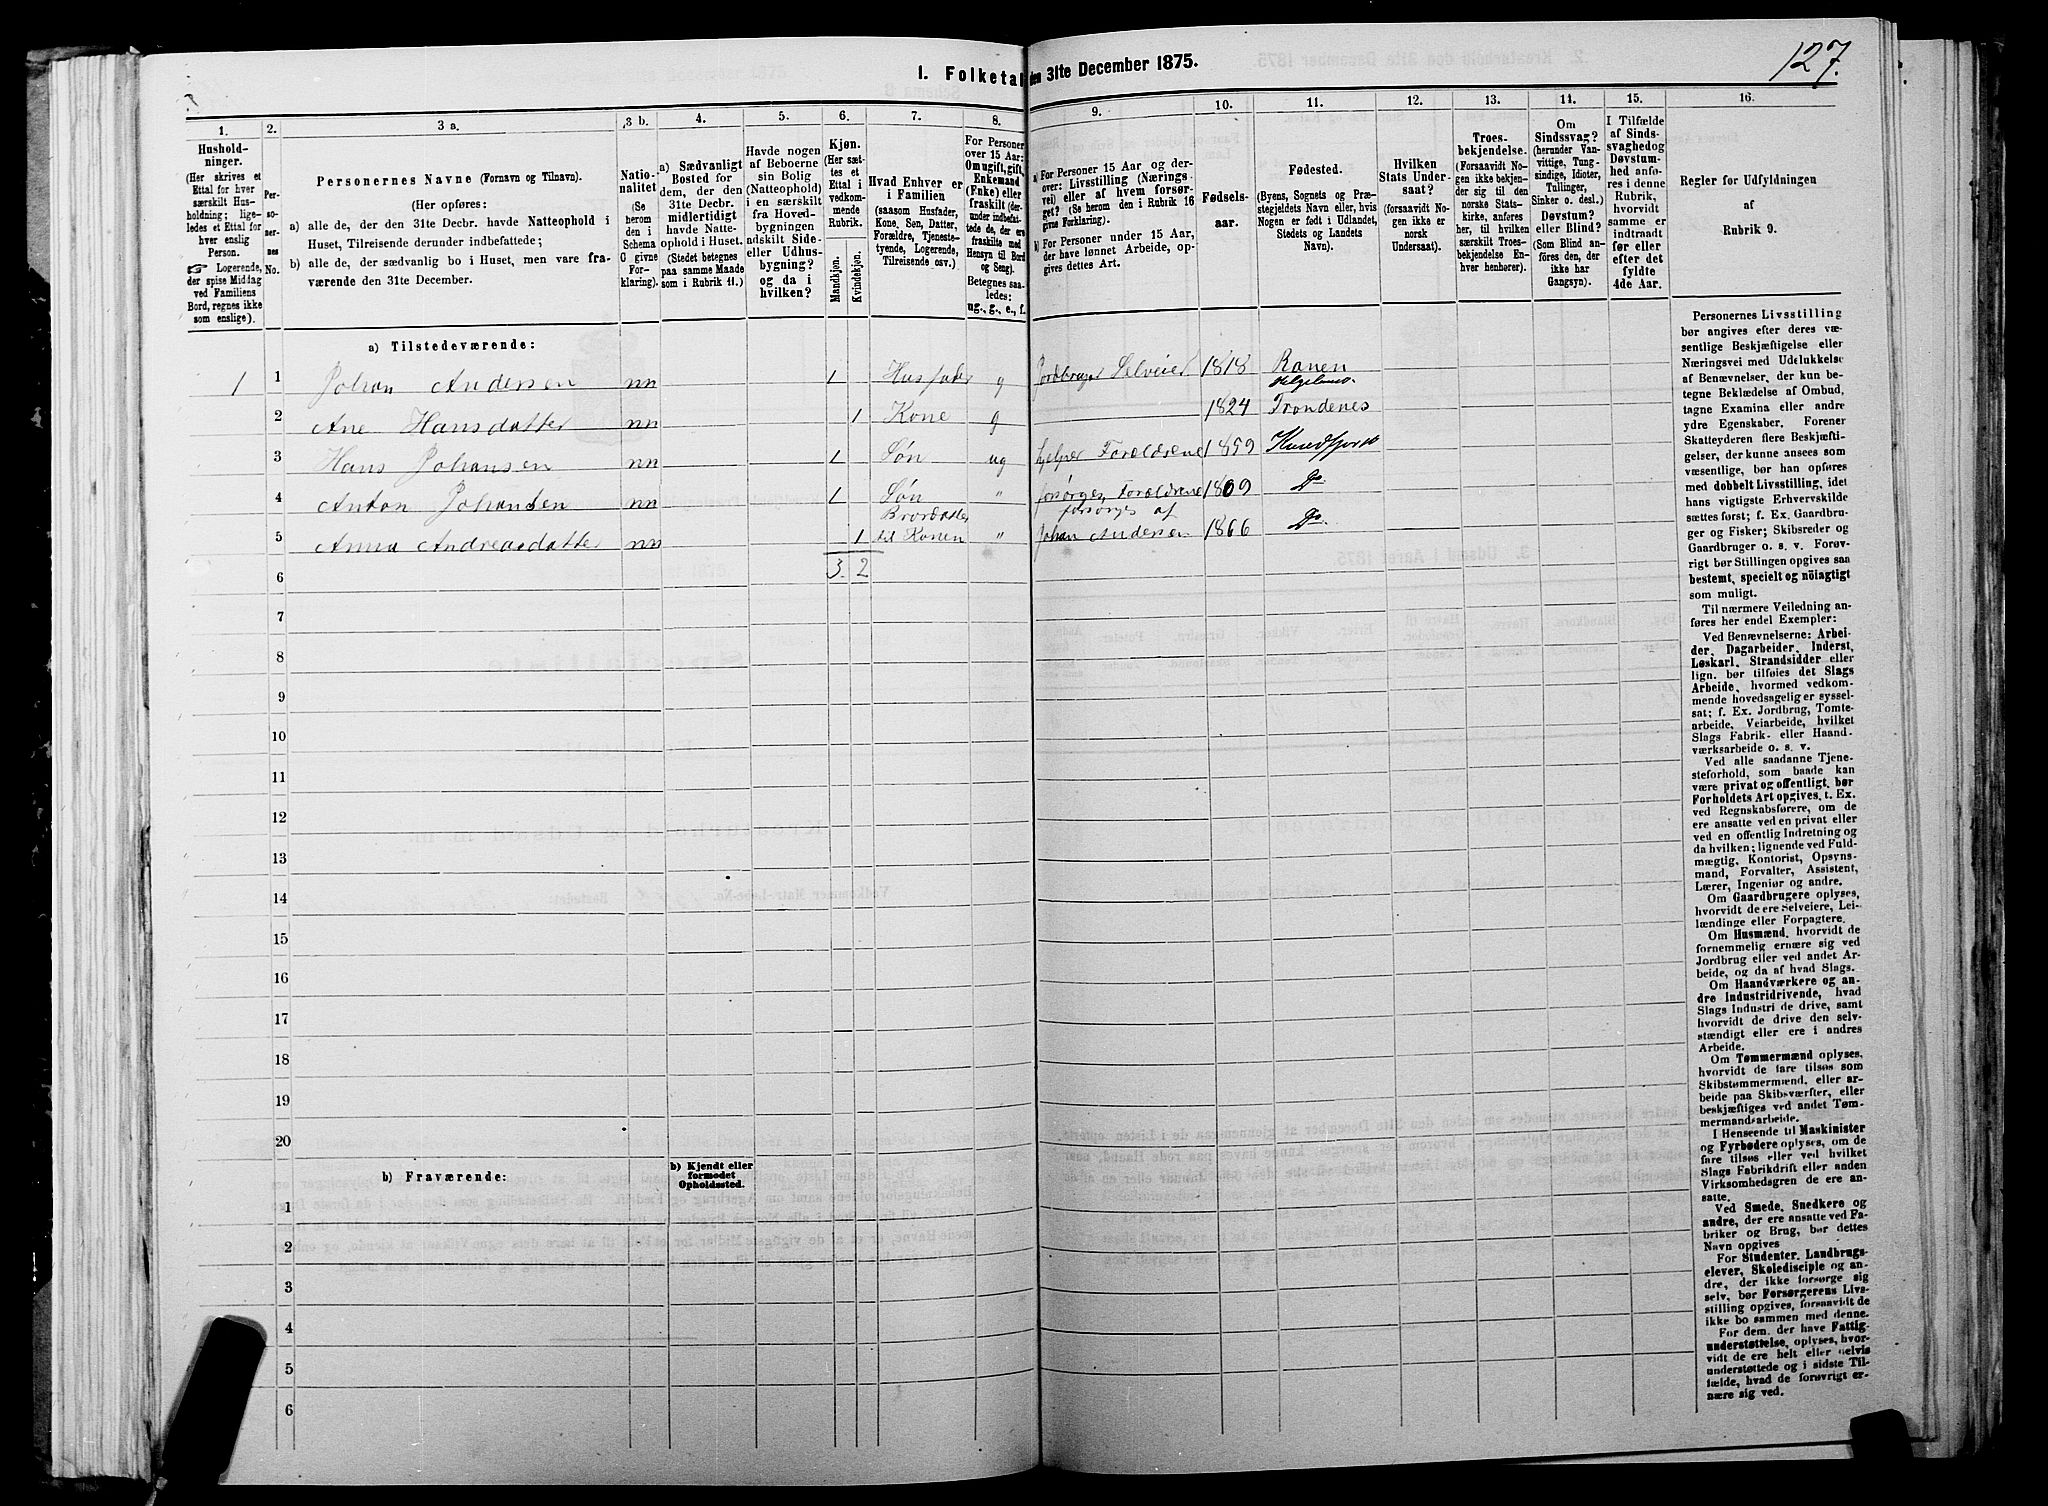 127.
1. Folketal den 31te December 1875.
1.
2.
3 a.
3 b.
4.
5.
6.
7.
8.
9.
10.
11.
12.
13.
14.
15.
16.
Husholdninger.
(Her skrives et
Ettal for hver
særskilt Husholdning; ligeledes et Ettal for
hver enslig
Person.
☞ Logerende,
der spise Middag
ved Familiens
Bord, regnes ikke
som enslige).
Personernes No.
Personernes Navne (Fornavn og Tilnavn).
(Her opføres:
a) alle de, der den 31te Decbr. havde Natteophold i
Huset, Tilreisende derunder indbefattede;
b) alle de, der sædvanlig bo i Huset, men vare fraværende den 31te December.
Nationalitet
(Se
herom
den i
Schema
C givne
Forklaring).
a) Sædvanligt
Bosted for
dem, der den
31te Decbr.
midlertidigt
havde Natteophold i Huset.
(Stedet betegnes
paa samme Maade
som i Rubrik 11.)
Havde nogen
af Beboerne
sin Bolig
(Natteophold)
i en særskilt
fra Hovedbygningen
adskilt Side-
eller Udhusbygning?
og da i
hvilken?
Kjøn.
(Her sættes et
Ettal i
vedkommende
Rubrik.
Mandkjøn.
Kvindekjøn.
Hvad Enhver er
i Familien
(saasom Husfader,
Kone, Søn, Datter,
Forældre, Tjenestetyende, Logerende,
Tilreisende osv.)
For Personer
over 15 Aar:
Om ugift, gift,
Enkemand
(Enke) eller
fraskilt (derunder indbefattede de, der ere
fraskilte med
Hensyn til Bord
og Seng).
Betegnes saaledes:
ug., g., e., f.
a) For Personer 15 Aar og derover: Livsstilling (Næringsvei) eller af hvem forsørget? (Se herom den i Rubrik 16
givne Forklaring).
b) For Personer under 15 Aar,
der have lønnet Arbeide, opgives dettes Art.
Fødselsaar.
Fødested.
(Byens, Sognets og Præstegjeldets Navn eller, hvis
Nogen er født i Udlandet,
Stedets og Landets
Navn).
Hvilken
Stats Undersaat?
(forsaavidt Nogen ikke er
norsk
Undersaat).
Troesbekjendelse.
(Forsaavidt Nogen ikke bekjender sig til den
norske Statskirke, anføres
her, til hvilken
særskilt Troesbekjendelse Enhver henhører).
Om
Sindssvag?
(herunder Vanvittige, Tungsindige, Idioter,
Tullinger,
Sinker o. desl.)
Døvstum?
eller Blind?
(Som Blind anføres den, der
ikke har
Gangsyn).
I Tilfælde
af Sindssvaghed og
Døvstumhed anføres i denne
Rubrik,
hvorvidt
samme er
indtraadt
før eller
efter det
fyldte
4de Aar.
Regler for Udfyldningen
af
Rubrik 9.
a) Tilstedeværende:
1 1 Johan Andersen nn 1 Husfader g Jordbruger Selveier 1818 Ranen Helgeland.
2 Ane Hansdatter nn 1 Kone g 1824 Trondenes
3 Hans Johansen nn 1 Søn ug hjelper Forældrene 1859
4 Anton Johansen nn 1 Søn " forsørges Forældrene 1869 Do.
5 Anna Andreasdatter nn 1 Brordatter til Konen " forsørges af Johan Andersen 1866 Do.
6 3. 2
7
8
9
10
11
12
13
14
15
16
17
18
19
20
b) Fraværende:
b) Kjendt eller
formodet
Opholdssted.
1
2
3
4
5
6
Personernes Livsstilling
bør angives efter deres væsentlige Beskjæftigelse eller
Næringsvei med Udelukkelse
af Benævnelser, der kun betegne Beklædelse af Ombud,
tagne Examina eller andre
ydre Egenskaber. Forener
Skatteyderen flere Beskjæftigelser, der kunne ansees som
væsentlige, bør han opføres
med dobbelt Livsstilling, idet
hans vigtigste Erhvervskilde
sættes først; f. Ex. Gaardbruger og Fisker; Skibsreder og
Gaardbruger o. s. v. Forøvrigt bør Stillingen opgives saa
bestemt, specielt og nöiagtigt
som muligt.
Til nærmere Veiledning anføres her endel Exempler:
Ved Benævnelserne: Arbeider, Dagarbeider, Inderst,
Løskarl, Strandsidder eller
lign. bør tilføies det Slags
Arbeide, hvormed vedkommende hovedsagelig er sysselsat; f. Ex. Jordbrug, Tomtearbeide, Veiarbeide, hvilket
Slags Fabrik- eller Haandværksarbeide o. s. v.
Ved alle saadanne Tjenesteforhold, som baade kan
være privat og offentligt, bør
Forholdets Art opgives, t. Ex.
ved Regnskabsførere, om de
ere ansatte ved en privat eller
ved en offentlig Indretning og
da hvilken; lignende ved Fuldmægtig, Kontorist, Opsynsmand, Forvalter, Assistent,
Lærer, Ingeniør og andre.
Om Gaardbrugere oplyses,
hvorvidt de ere Selveiere, Leilændinge eller Forpagtere.
Om Husmænd, hvorvidt de
fornemmelig ernære sig ved
Jordbrug eller ved andet Arbeide, og da af hvad Slags.
Om Haandværkere og andre Industridrivende, hvad
Slags Industri de drive, samt
hvorvidt de drive den selvstændigt eller ere i andres
Arbeide.
Om Tømmermænd oplyses,
hvorvidt de fare tilsøs som
Skibstømmermænd, eller arbeide paa Skibsværfter, eller
beskjæftiges ved andet Tømmermandsarbeide.
I Henseende til Maskinister
og Fyrbødere oplyses, om de
fare tilsøs eller ved hvilket
Slags Fabrikdrift eller anden
Virksomhedsgren de ere ansatte.
Ved Smede, Snedkere og
andre, der ere ansatte ved Fabriker og Brug, bør dettes
Navn opgives
For Studenter, Landbrugselever, Skoledisciple og andre, der ikke forsørge sig
selv, bør Forsørgerens Livsstilling opgives, forsaavidt de
ikke bo sammen med denne.
For dem, der have Fattigunderstøttelse, oplyses, hvorvidt de ere helt eller delvis
understøttede og i sidste Tilfælde, hvad de forøvrigt ernære sig ved.